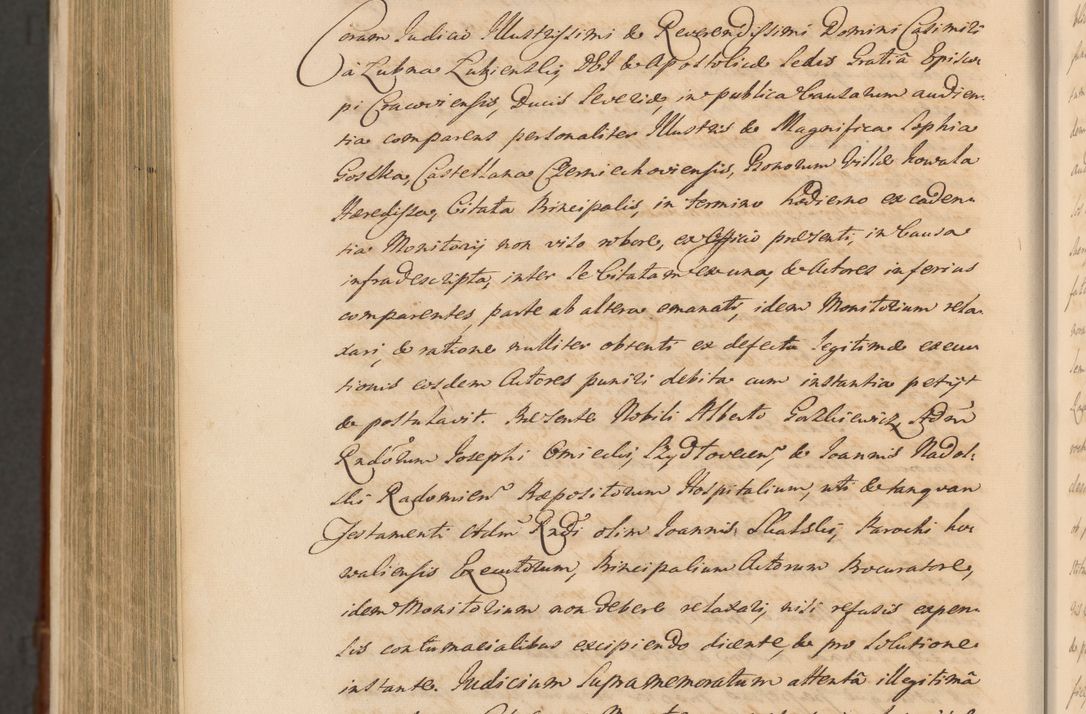 Coram Judicio Illustrissimi & Reverendissimi Domini Casimiri
à Łubna Łubienskij, DEI & Apostolicæ Sedis Gratiâ Episco-
pi Cracoviensis, Ducis Severiæ, in publica Causarum audien-
tia comparens personaliter Illustris & Magnifica Sophia
Goska, Castellana Czerniechoviensis, Bonorum Villæ Kowala
Hæredissa, Citata Principalis, in termino hodierno ex caden-
tia Monitorij non viso robore, ex Officio præsenti, in Causa
infradescripta, inter se Citatam ex una, & Actores inferius
comparentes, parte ab altera emanati, idem Monitorium rela-
xari, & ratione nulliter obtenti ex defectu legitimæ execu-
tionis eosdem Actores puniri debita cum instantia petijt
& postulavit. Præsente Nobili Alberto Gorzkiewicz, Adm̃
Rndorum Josephi Omiecki, Szydłovecen: & Joannis Nadol-
skis Radomien: Præpositorum Hospitalium, uti & tanquam
Testamenti Adm̃ Rndi olim Joannis Skalski, Parochi Ko-
waliensis Executorum, Principalium Actorum Procuratore,
idem Monitorium non debere relaxari, nisi refusis expen-
sis contumacialibus excipiendo dicente, & pro solutione
instante. Judicium supramemoratum attentâ illegitimâ